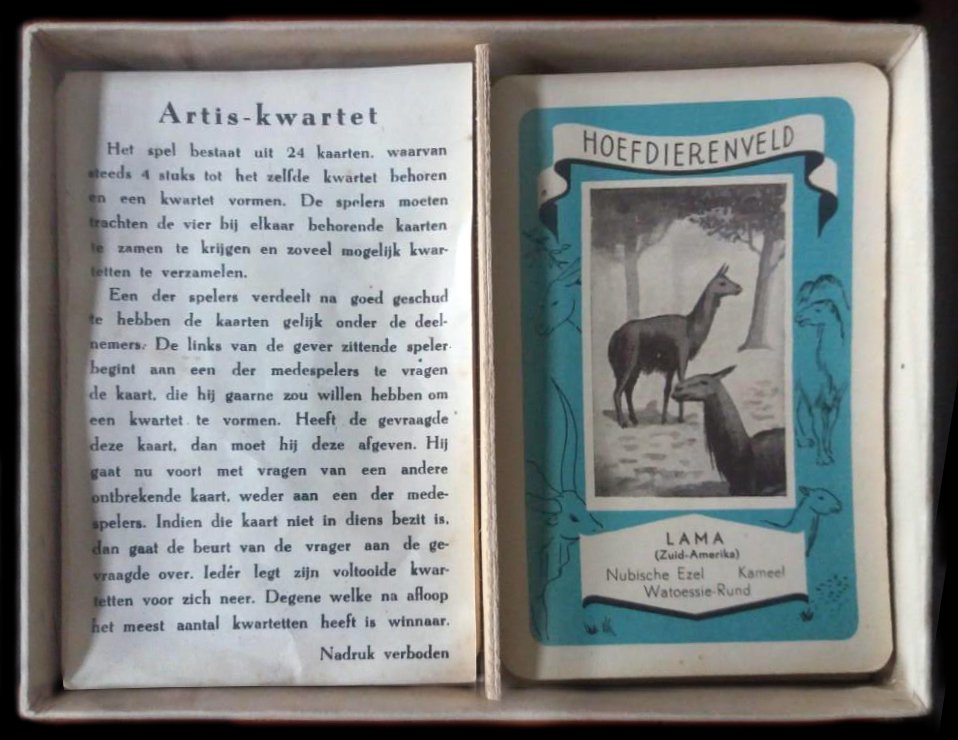 Artis-kwartet
Het spel bestaat uit 24 kaarten. waarvan
steeds 4 stuks tot het zelfde kwartet behoren
en een kwartet vormen. De spelers moeten
trachten de vier bij elkaar behorende kaarten
te zamen te krijgen en zoveel mogelijk kwar-
tetten te verzamelen.
Een der spelers verdeelt na goed geschud
te hebben de kaarten gelijk onder de deel-
nemers. De links van de gever zittende speler
begint aan een der medespelers te vragen
de kaart, die hij gaarne zou willen hebben om
een kwartet te vormen. Heeft de gevraagde
deze kaart, dan moet hij deze afgeven. Hij
gaat nu voort met vragen van een andere
ontbrekende kaart, weder aan een der mede-
spelers. Indien die kaart niet in diens bezit is,
dan gaat de beurt van de vrager aan de ge-
vraagde over. Iedêr legt zijn voltooide kwar-
tetten voor zich neer. Degene welke na afloop
het meest aantal kwartetten heeft is winnaar.
Nadruk verboden
HOEFDIERENVELD
LAMA
(Zuid-Amerika)
Nubische Ezel Kameel
Watoessie-Rund